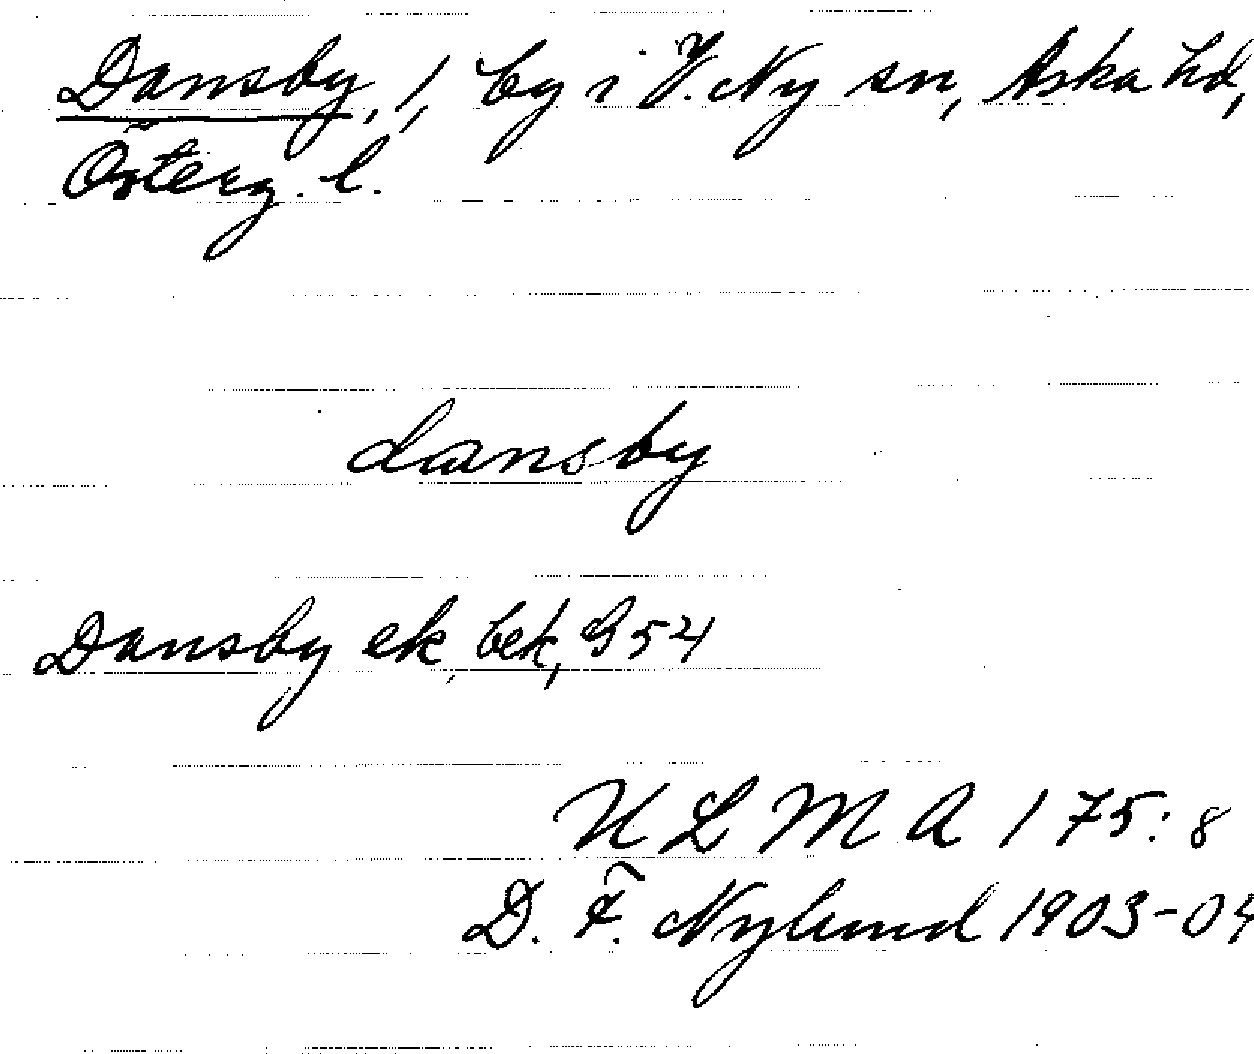 Dansby, 1, by i V. Ny sn, Aska hd,
Österg. l.
dansby
Dansby ek. bek, G 54
ULMA 175:8
D. F. Nylund 1903-04